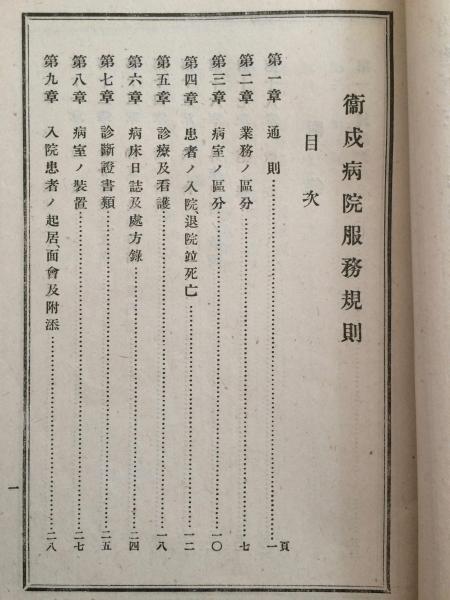 衞戍病院服務規則
目次
第一章 通則……一頁
第二章 業務ノ區分……七
第三章 病室ノ區分……一〇
第四章 患者ノ入院、退院竝死亡……一二
第五章 診療及看護……一八
第六章 病床日誌及處方錄……二四
第七章 診斷證書類……二五
第八章 病室ノ裝置……二七
第九章 入院患者ノ起居、面會及附添……二八
一